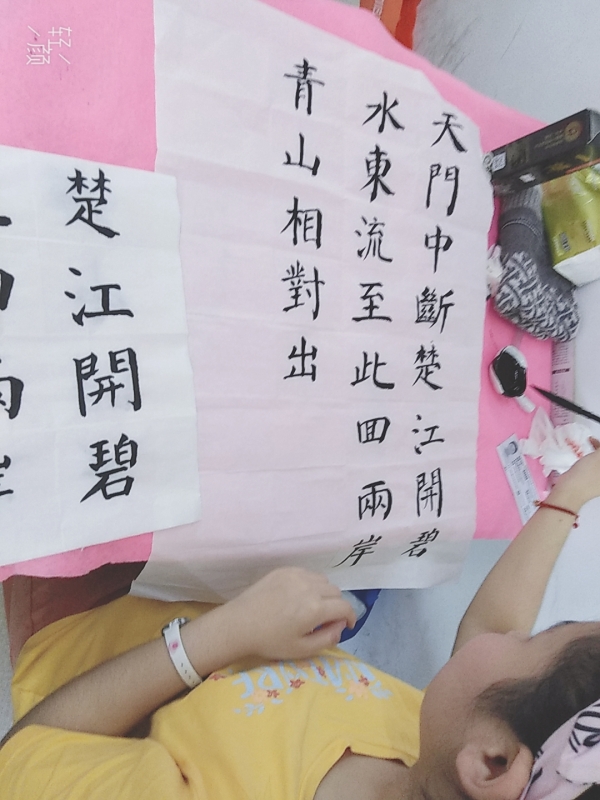 天門中斷楚江開碧
水東流至此回兩岸
青山相對出
楚江開碧
轻颜